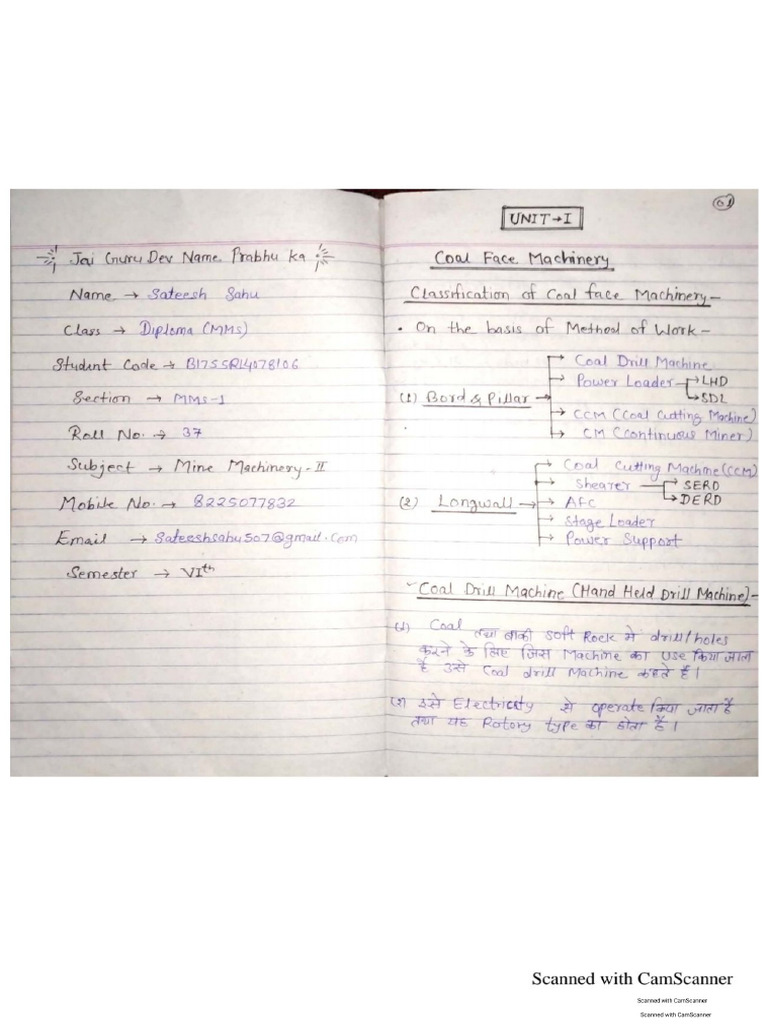 Jai Guru Dev Name Prabhu Ka
Name → Sateesh Sahu
Class → Diploma (MMS)
Student Code → B175SR14078106
Section → MMS-1
Roll No. → 37
Subject → Mine Machinery - II
Mobile No. → 8225077832
Email → Sateeshsahu507@gmail.com
Semester → VIth
01
UNIT → I
Coal Face Machinery
Classification of Coal face Machinery -
• On the basis of Method of Work -
(1) Bord & Pillar →
→ Coal Drill Machine
→ Power Loader → LHD
→ SDL
→ CCM (Coal Cutting Machine)
→ CM (Continuous Miner)
(2) Longwall →
→ Coal Cutting Machine (CCM)
→ Shearer → SERD
→ DERD
→ AFC
→ Stage Loader
→ Power Support
Coal Drill Machine (Hand Held Drill Machine) -
(1) Coal तथा बाकी soft Rock में drill/holes
करने के लिए जिस Machine का use किया जाता
है उसे Coal drill Machine कहते हैं।
(2) इसे Electricity से operate किया जाता है
तथा यह Rotory type का होता है।
Scanned with CamScanner
Scanned with CamScanner
Scanned with CamScanner